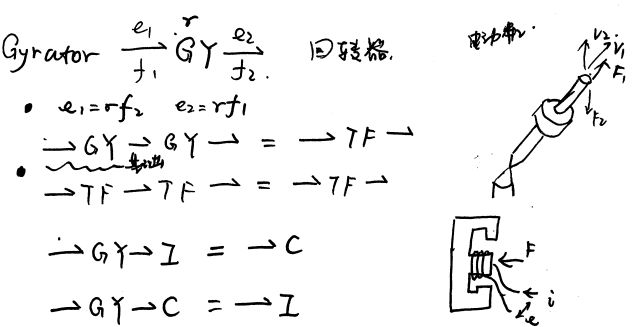 Gyrator e₁ f₁ → r GY e₂ f₂ → 回转器.
• e₁=rf₂ e₂=rf₁
→GY→GY→ = →TF→
• →TF→TF→ = →TF→
→GY→I = →C
→GY→C = →I
V₂ V₁
F₁
F₂
F
i
e